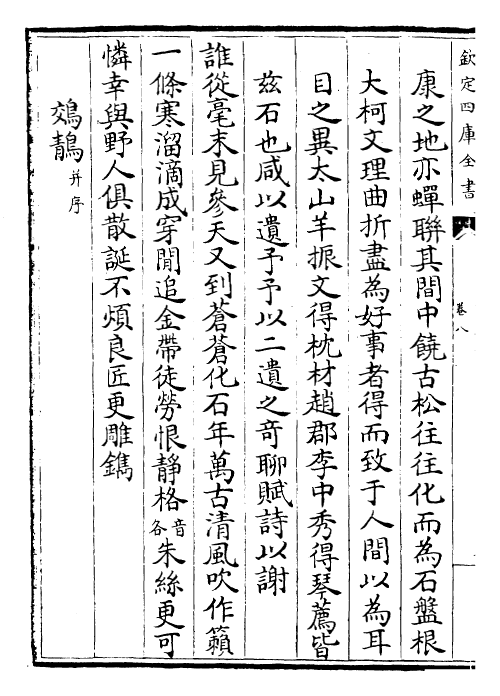 欽定四庫全書
卷八
康之地亦蟬聯其間中饒古松往往化而為石盤根
大柯文理曲折盡為好事者得而致于人間以為耳
目之異太山羊振文得枕材趙郡李中秀得琴薦皆
兹石也咸以遺予予以二遺之奇聊賦詩以謝
誰從毫末見參天又到蒼蒼化石年萬古清風吹作籟
一條寒溜滴成穿閒追金帶徒勞恨靜格音各朱絲更可
憐幸與野人俱散誕不煩良匠更雕鐫
鵁鶄并序